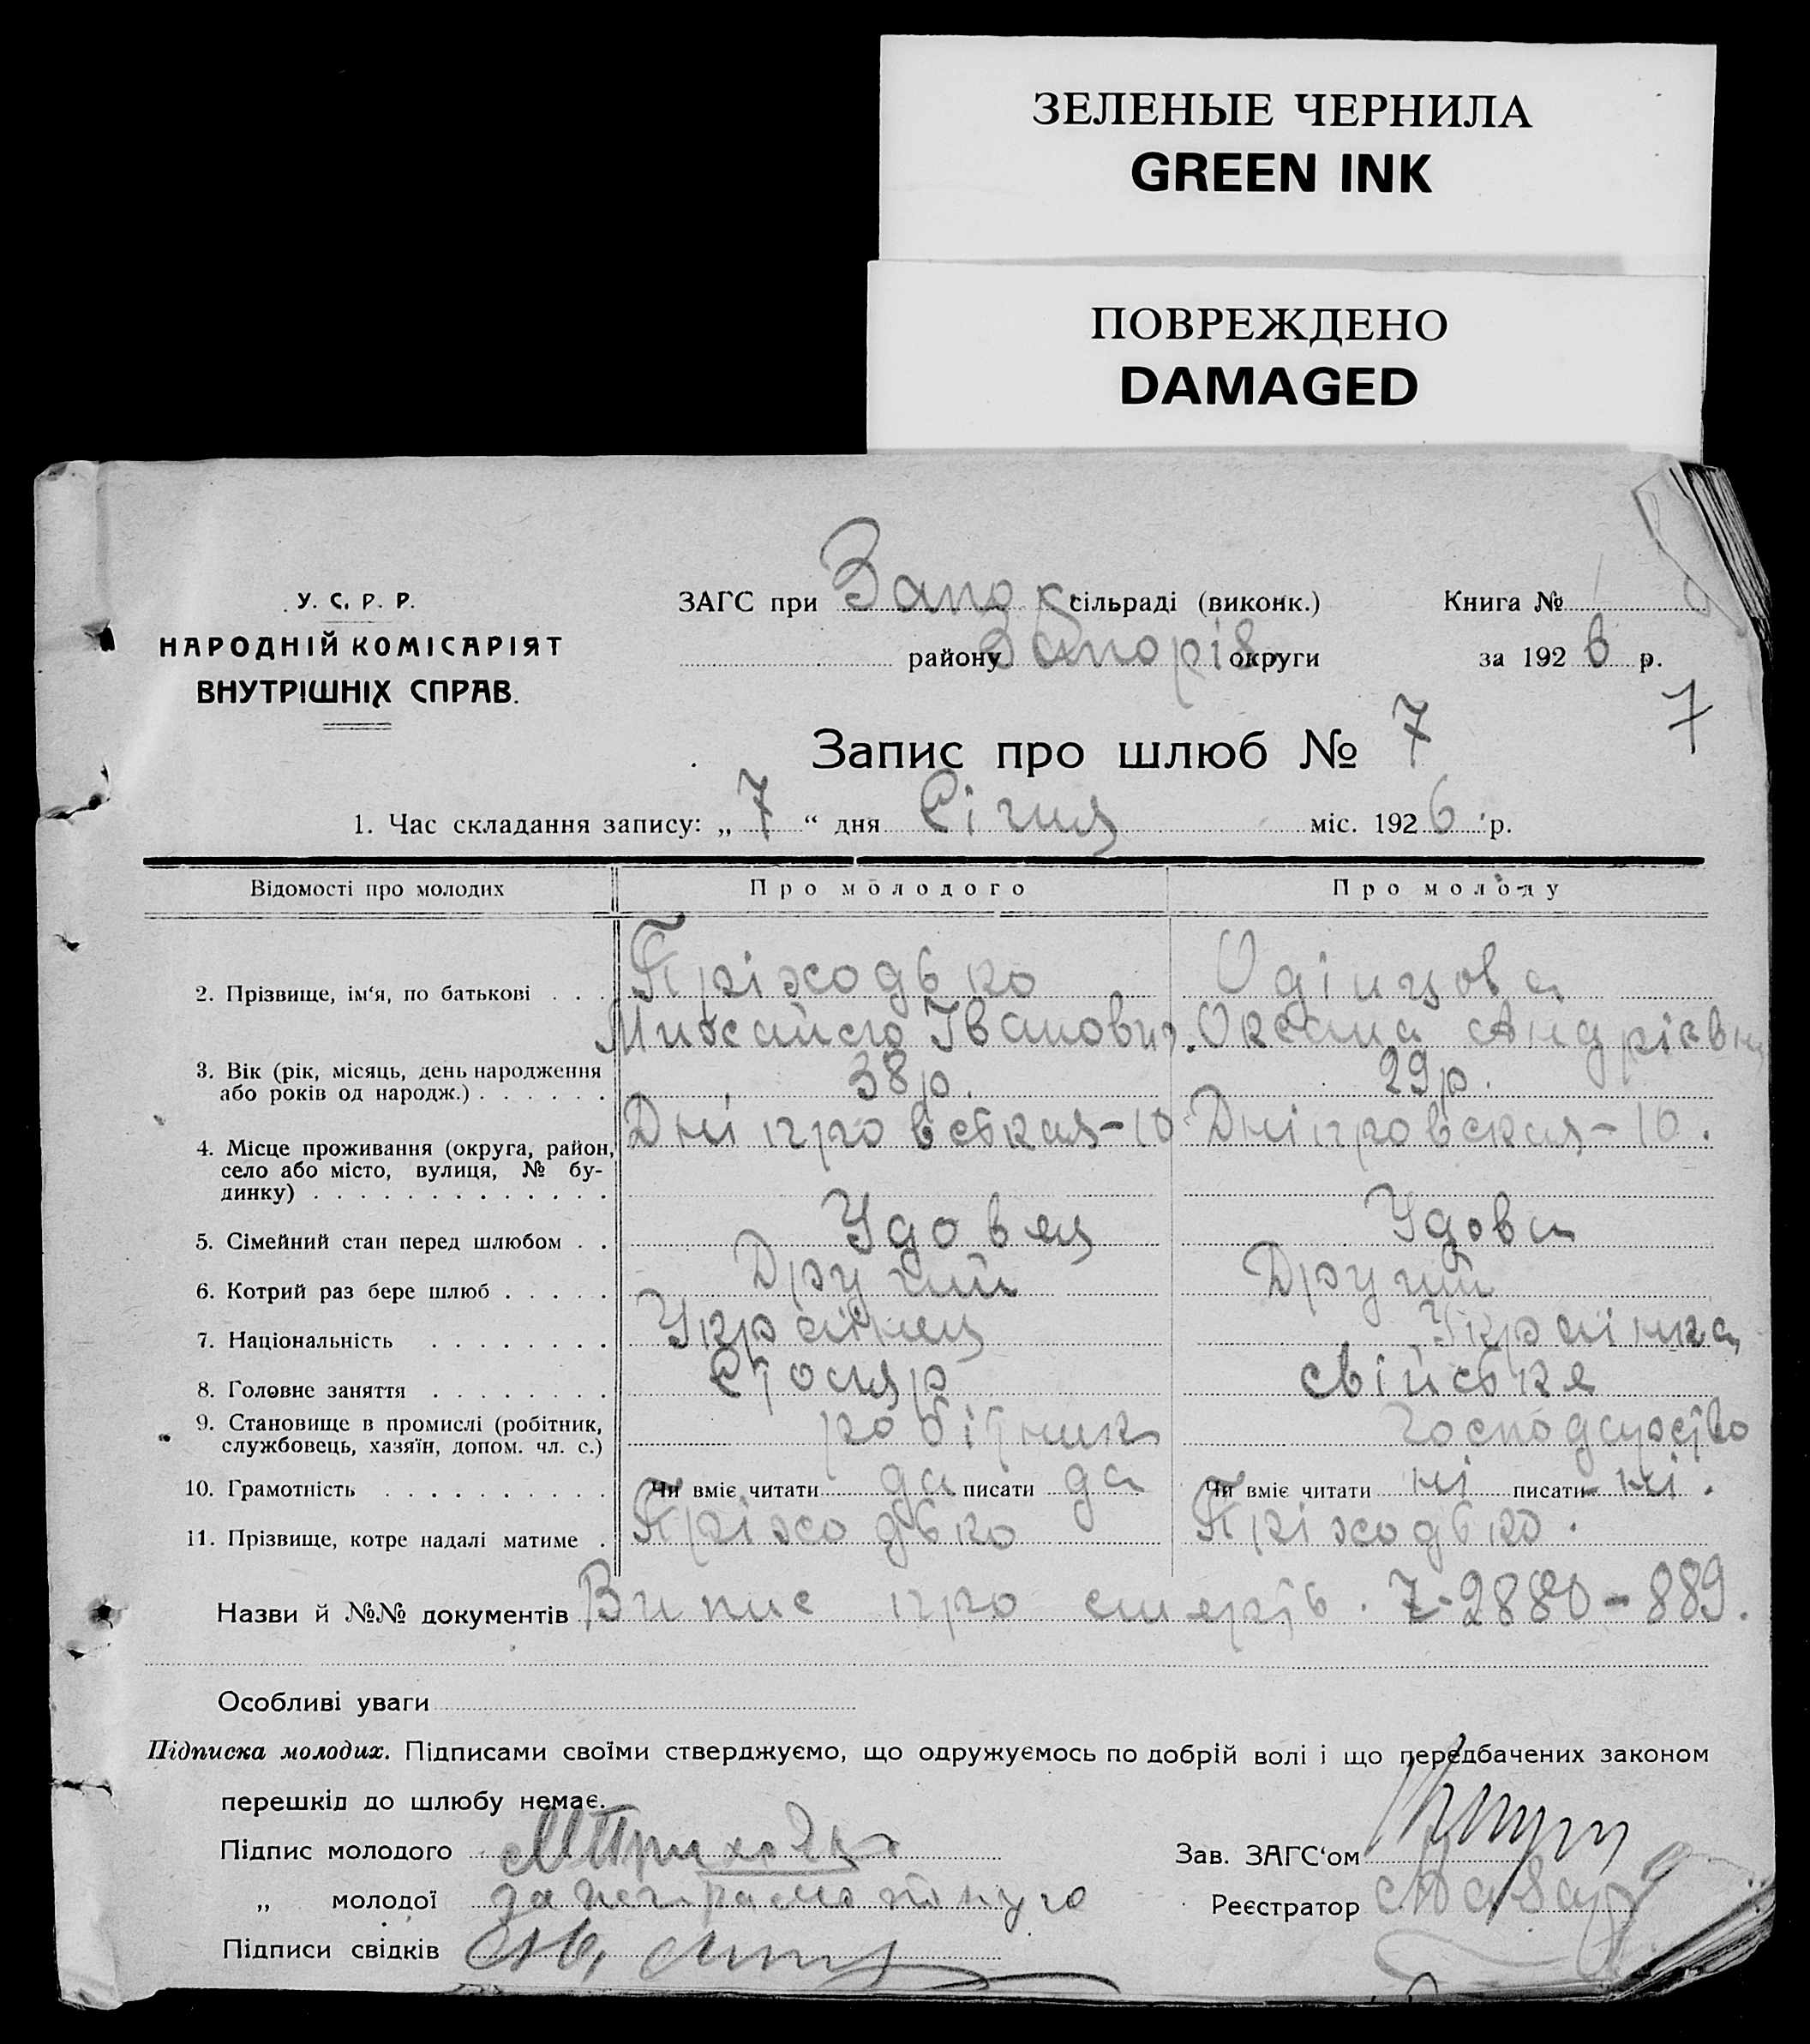 ЗЕЛЕНЫЕ ЧЕРНИЛА
GREEN INK
ПОВРЕЖДЕНО
DAMAGED
У. С. Р. Р.
НАРОДНІЙ КОМІСАРІЯТ
ВНУТРІШНІХ СПРАВ.
ЗАГС при Запор. сільраді (виконк.)
району Запоріз. округи
Книга №
за 1926 р.
7
Запис про шлюб № 7
1. Час складання запису: „ 7 “ дня Січня міс. 1926 р.
Відомості про молодих Про молодого Про молоду
2. Прізвище, ім‘я, по батькові . . . Пріходько Одінцова
Михайло Іванович. Оксана Андріевна
3. Вік (рік, місяць, день народження або років од народж.) . . . . . . 38 р. 29 р.
4. Місце проживання (округа, район, село або місто, вулиця, № будинку) . . . . . . . . . . . . . Дніпровськая-10 Дніпровская-10.
5. Сімейний стан перед шлюбом . . Удовец Удова
6. Котрий раз бере шлюб . . . . . Другий Другий
7. Національність . . . . . . . . Українец Українка
8. Головне заняття . . . . . . . . Столяр свійське
9. Становище в промислі (робітник, службовець, хазяїн, допом. чл. с.) робітник господарство
10. Грамотність . . . . . . . . . . Чи вміє читати да писати да Чи вміє читати ні писати ні.
11. Прізвище, котре надалі матиме . Пріходько Пріходько.
Назви й №№ документів Випис про смерть. 7-2880-889.
Особливі уваги
Підписка молодих. Підписами своїми стверджуємо, що одружуємось по добрій волі і що передбачених законом
перешкід до шлюбу немає.
Підпис молодого МПриходько
„ молодої за неграмотную
Підписи свідків
Зав. ЗАГС‘ом
Реєстратор